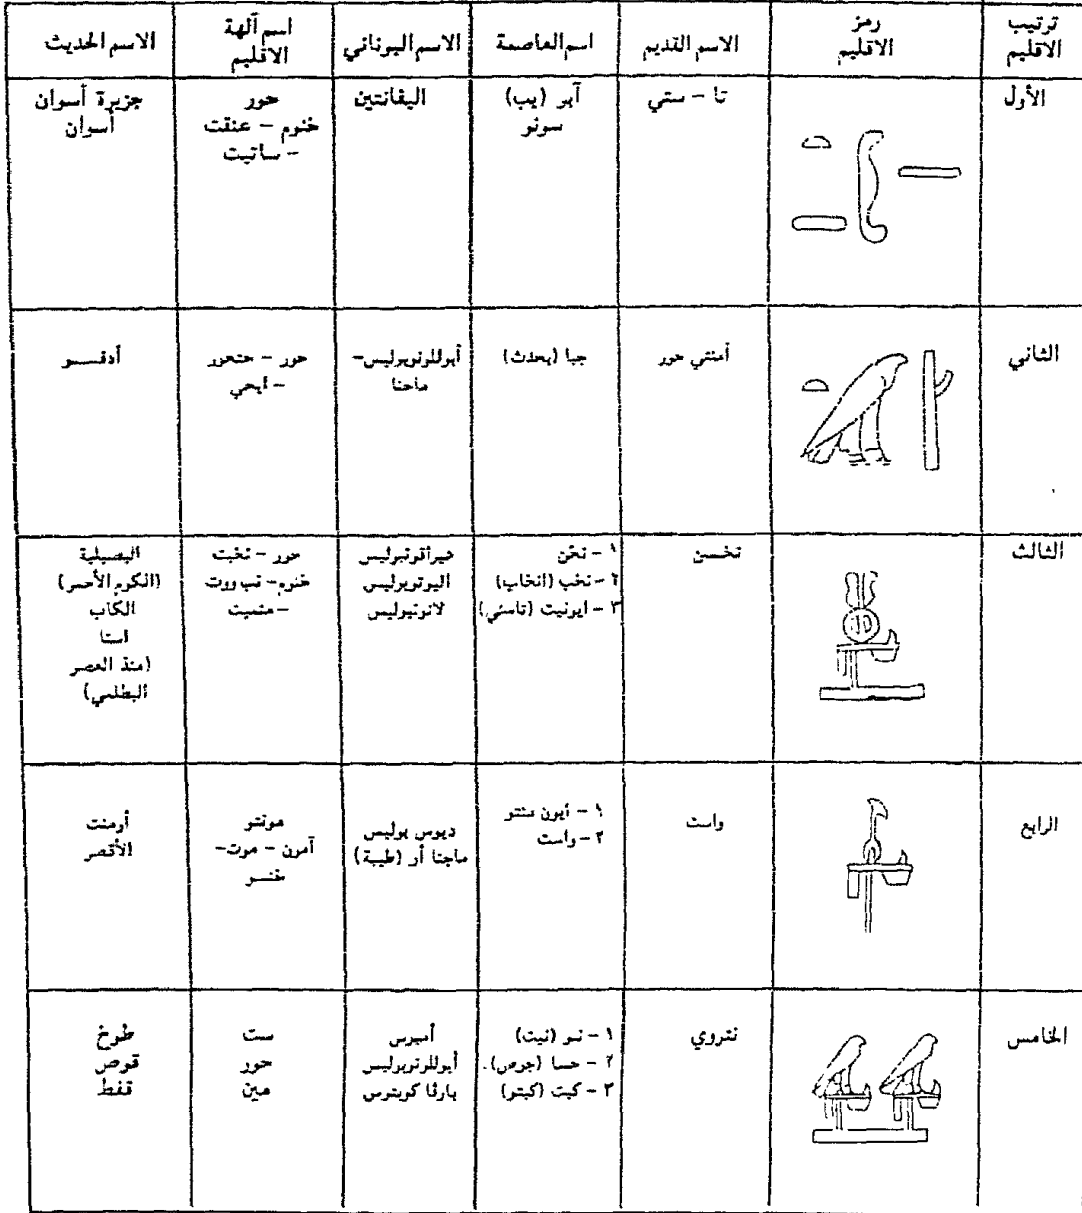 ترتيب الاقليم | رمز الاقليم | الاسم القديم | اسم العاصمة | الاسم اليوناني | اسم آلهة الاقليم | الاسم الحديث
الأول
تا - ستي
آبو (يب)
سونو
اليفانتين
حور
خنوم - عنقت
- ساتيت
جزيرة أسوان
أسوان
الثاني
أمنتي حور
جبا (بحدث)
أبوللونوبوليس-
ماجنا
حور - حتحور
- ايحي
أدفـــو
الثالث
نخـن
١ - نخن
٢ - نخب (انخاب)
٣ - ايونيت (تاسني)
هيراقونبوليس
اليوتوبوليس
لاتونبوليس
حور - نخبت
خنوم - نب ووت
- منحيت
البصيلية
(الكوم الأحمر)
الكاب
اسنا
(منذ العصر
البطلمي)
الرابع
واست
١ - أيون منتو
٢ - واست
ديوس بوليس
ماجنا أو (طيبة)
مونتو
آمون - موت -
خنـو
أرمنت
الأقصر
الخامس
نتروي
١ - نبو (نيت)
٢ - حسا (جوص).
٣ - كبت (كبتو)
أمبوس
أبوللونوبوليس
بارفا كوبتوس
ست
حور
مين
طوخ
قوص
قفط